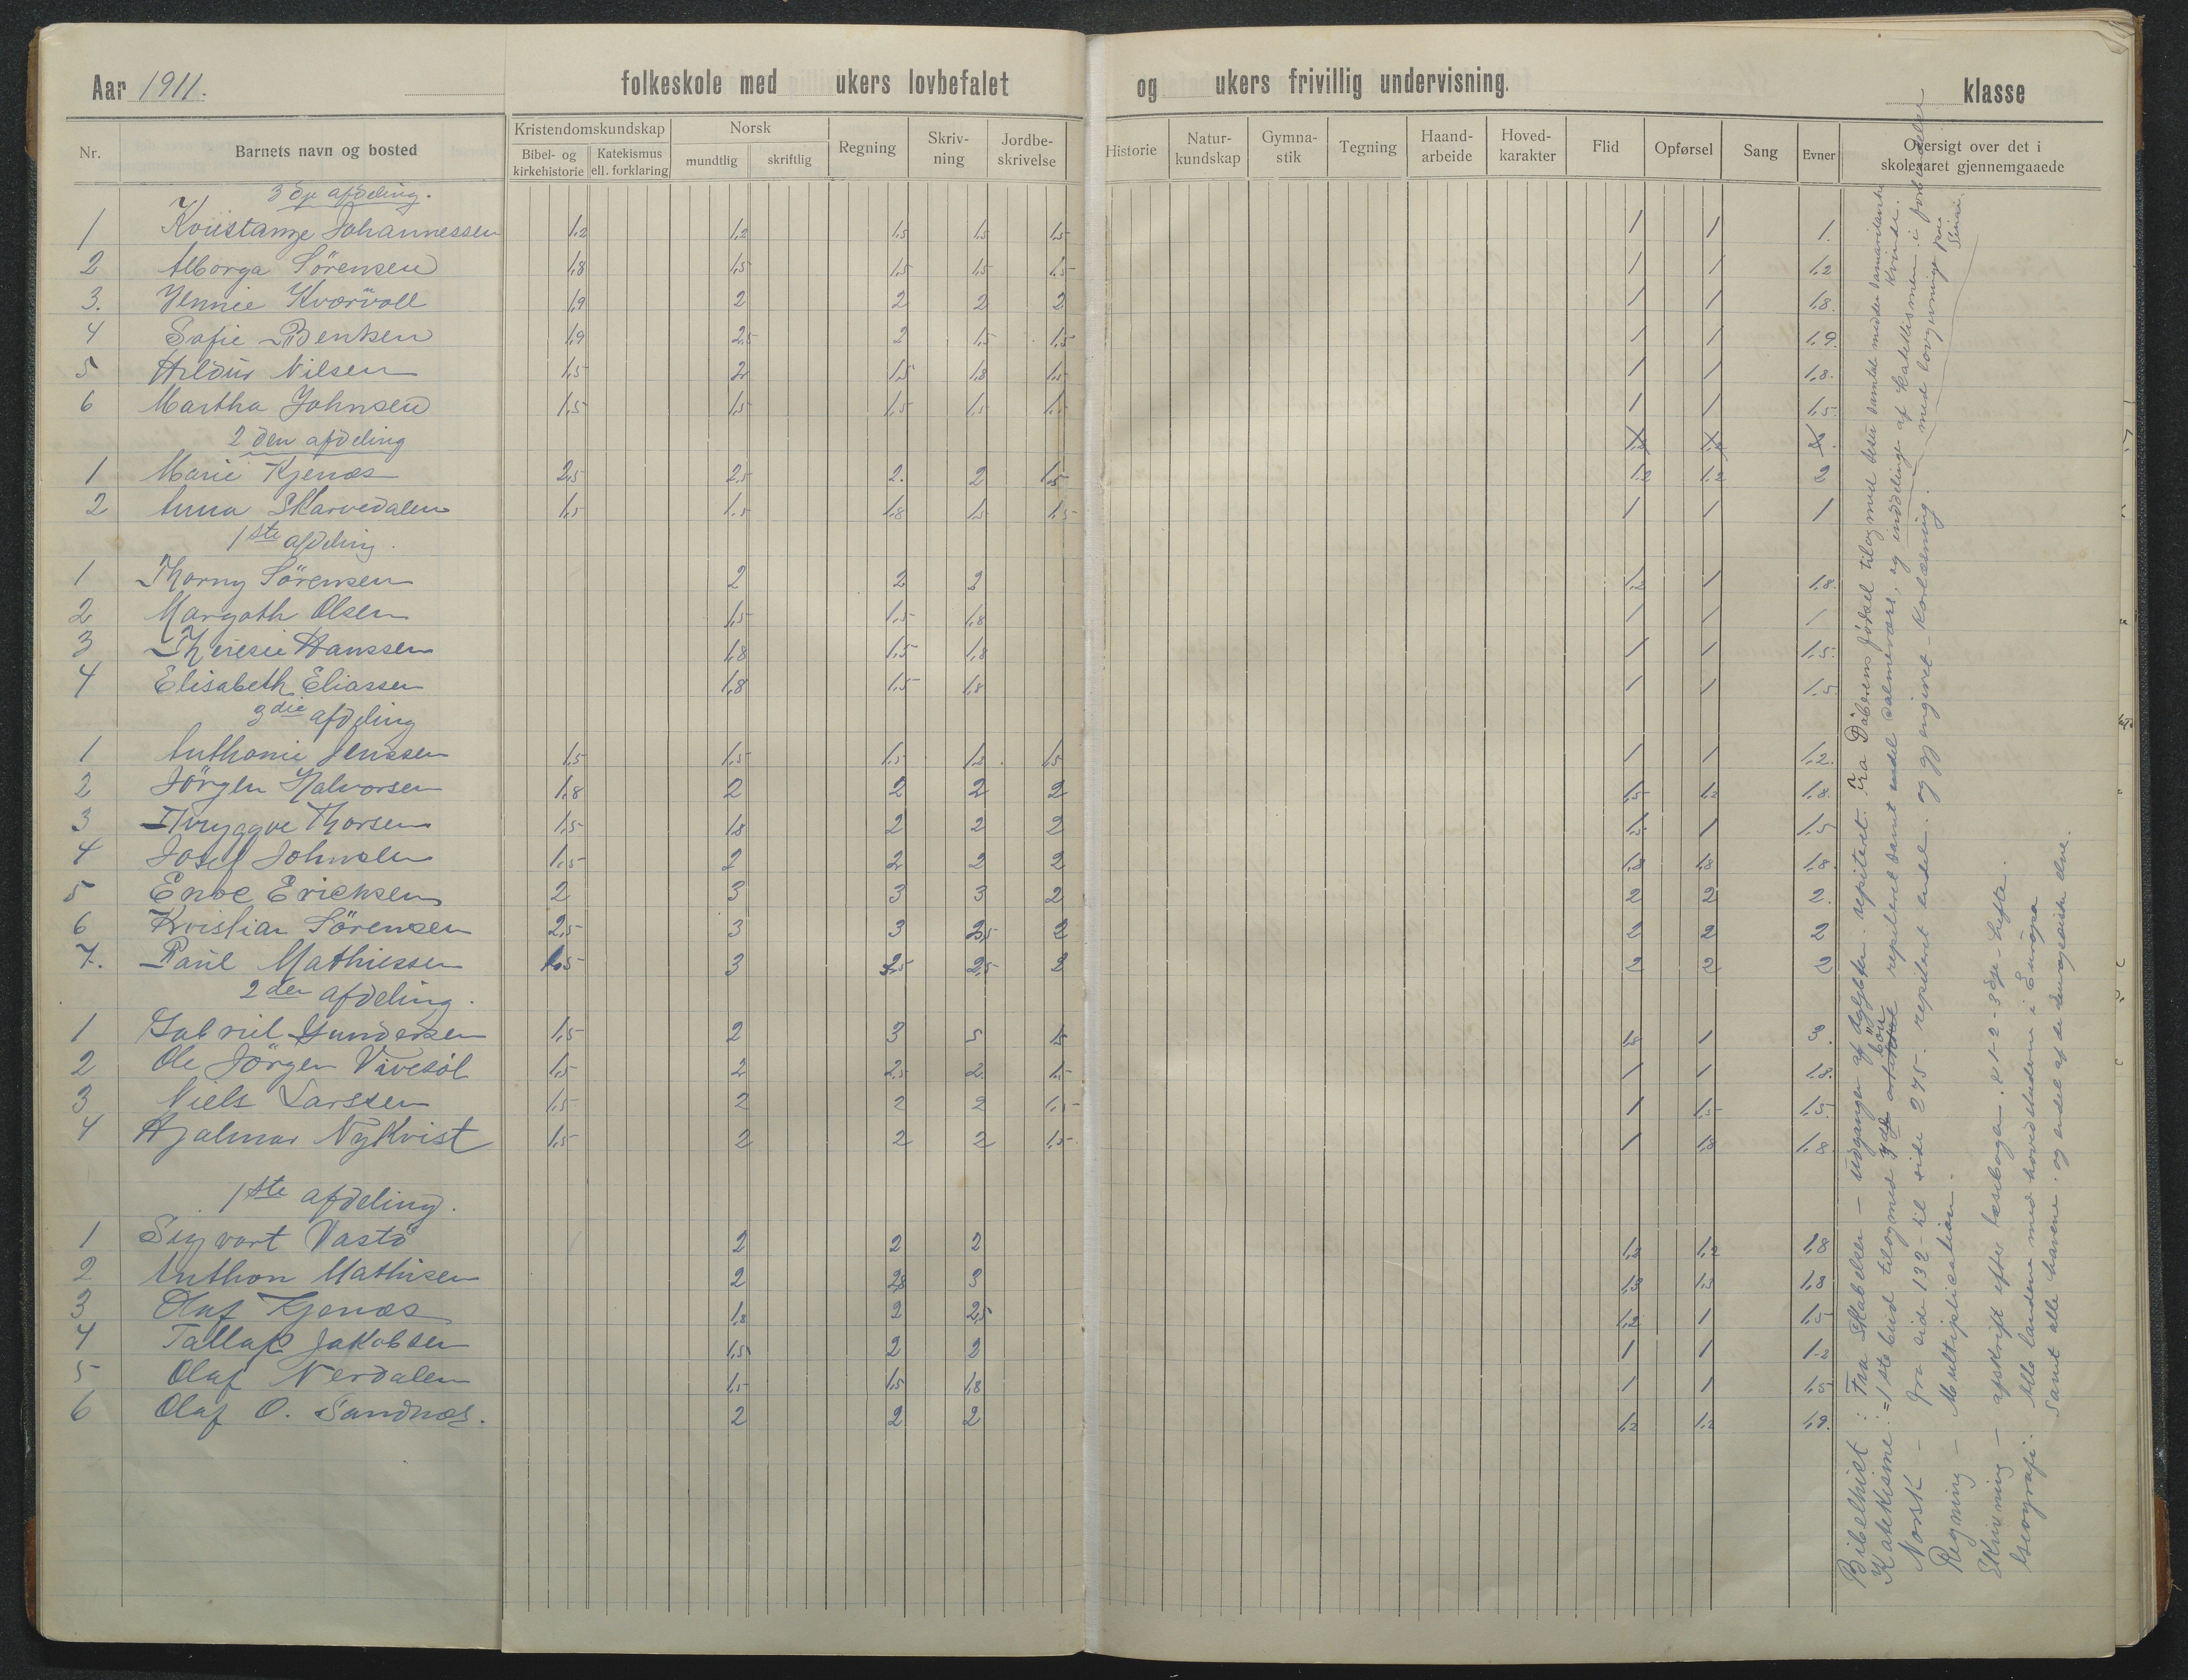 Aar 1911. folkeskole med ukers lovbefalet og ukers frivillig undervisning. klasse
Nr. Barnets navn og bosted Kristendomskundskap Norsk Regning Skriv-ning Jordbe-skrivelse Historie Natur-kundskap Gymna-stik Tegning Haand-arbeide Hoved-karakter Flid Opførsel Sang Evner Oversigt over det i skoleaaret gjennemgaaede
Bibel- og kirkehistorie Katekismus ell. forklaring mundtlig skriftlig
3dje afdeling.
1 Johannessen 1,2 1,2 1,5 1,5 1,5 1 1 1.
2 Alborga Sørensen 1,8 1,5 1,5 1,5 1,5 1 1 1,2
3. Jennie Kvarvoll 1,9 2 2 2 2 1 1 1,8.
4 Sofie Bentsen 1,9 2,5 2 1,5 1,5 1 1 1,9.
5 Hildur Nilsen 1,5 2 1,5 1,8 1,5 1 1 1,8.
6 Martha Johnsen 1,5 1,5 1,5 1,5 1,5 1 1 1,5.
2den afdeling
1 Marie Kjenæs 2,5 2,5 2. 2 1,5 1,2 1,2 2
2 Anna Skarvedalen 1,5 1,5 1,8 1,5 1,5 1 1 1
1ste afdeling.
1 Thorny Sörensen 2 2 2 1,2 1 1,8.
2 Margoth Olsen 1,5 1,5 1,8 1 1 1
3 Theresie Hanssen 1,8 1,5 1,8 1 1 1,5.
4 Elisabeth Eliassen 1,8 1,5 1,8 1 1 1,5
3die afdeling
1 Anthonie Jenssen 1,5 1,5 1,5 1,2 1,5 1 1 1,2.
2 Jörgen Halvorsen 1,8 2 2 2 2 1,5 1,2 1,8.
3 Thryggve Thorsen 1,5 1,8 2 2 2 1,5 1 1,5
4 Josef Johnsen 1,5 2 2 2 2 1,8 1,8 1,8.
5 Enoc Ericksen 2 3 3 3 2 2 2 2.
6 Kristian Sörensen 2,5 3 3 2,5 2 2 2 2
7. Paul Mathiessen 1,5 3 2,5 2,5 2 2 2 2
2den afdeling.
1 Gabriel Gundersen 1,5 2 3 5 1,5 1,8 1 3.
2 Ole Jörgen Vivesöl 1,5 2 2,5 2. 1,5 1 1 1,8.
3 Niels Larssen 1,5 2 2 2 1,5 1 1,5 1,5.
4 Hjalmar Nykvist 1,5 2 2 2 1,5 1 1,8 1,8.
1ste afdeling.
1 Sigvart Vastö 2 2 2 1,2 1,2 1,8
2 Anthon Mathisen 2 2,8 3 1,3 1,3 1,8
3 Olaf Kjenæs 1,8 2 2,5 1,2 1 1,5
4 Tallak Jakobsen 1,5 2 2 1 1 1,2
5 Olaf Nerdalen 1,5 1,5 1,8 1 1 1,5
6 Olaf O. Sandnæs. 2 2 2 1,2 1,2 1,9.
Bibelhist: Fra Skabelsen – udgangen af Ægypten. repiteret. Fra Döberens fødsel tilogmed Jesu samtale med den samaritanske kvinde.
Katekisme: 1ste bud tilogmed 7de bön repiteret samt endel salmevers, og inddelinge af Katekismen i forbindelse med lovgivninge paa Sinai.
Norsk – fra side 132 – til side 275. repiteret endel. og gjengivet – Korlæsning.
Regning – Multiplication.
Skrivning – afskrift efter læsebogen. 1-2-3dje hefte.
Geografi: Alle landene med hovedstæderne i Europa
Samt alle havene. og endel af de europæiske elve.